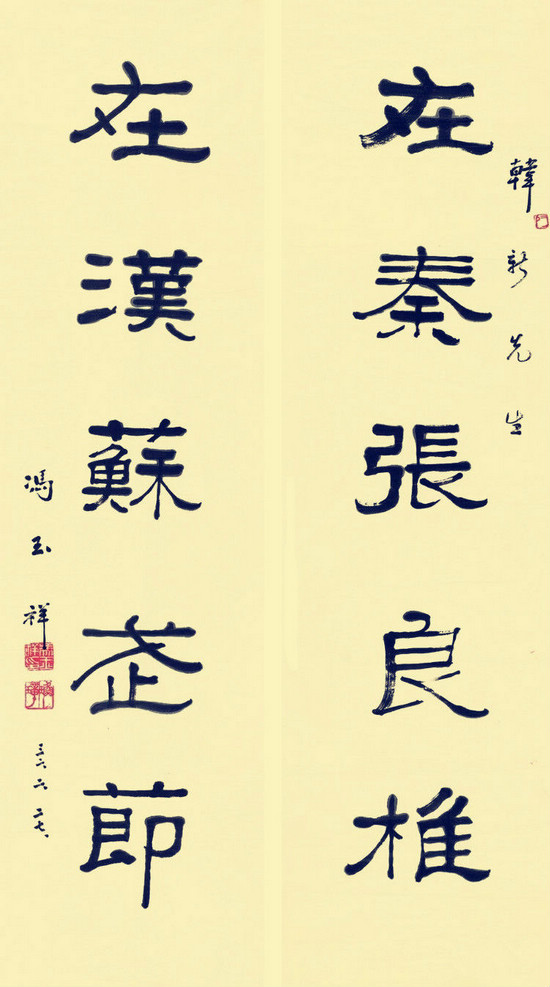 韓新先生
在秦張良椎
在漢蘇武節
馮玉祥
三六、六、二七、